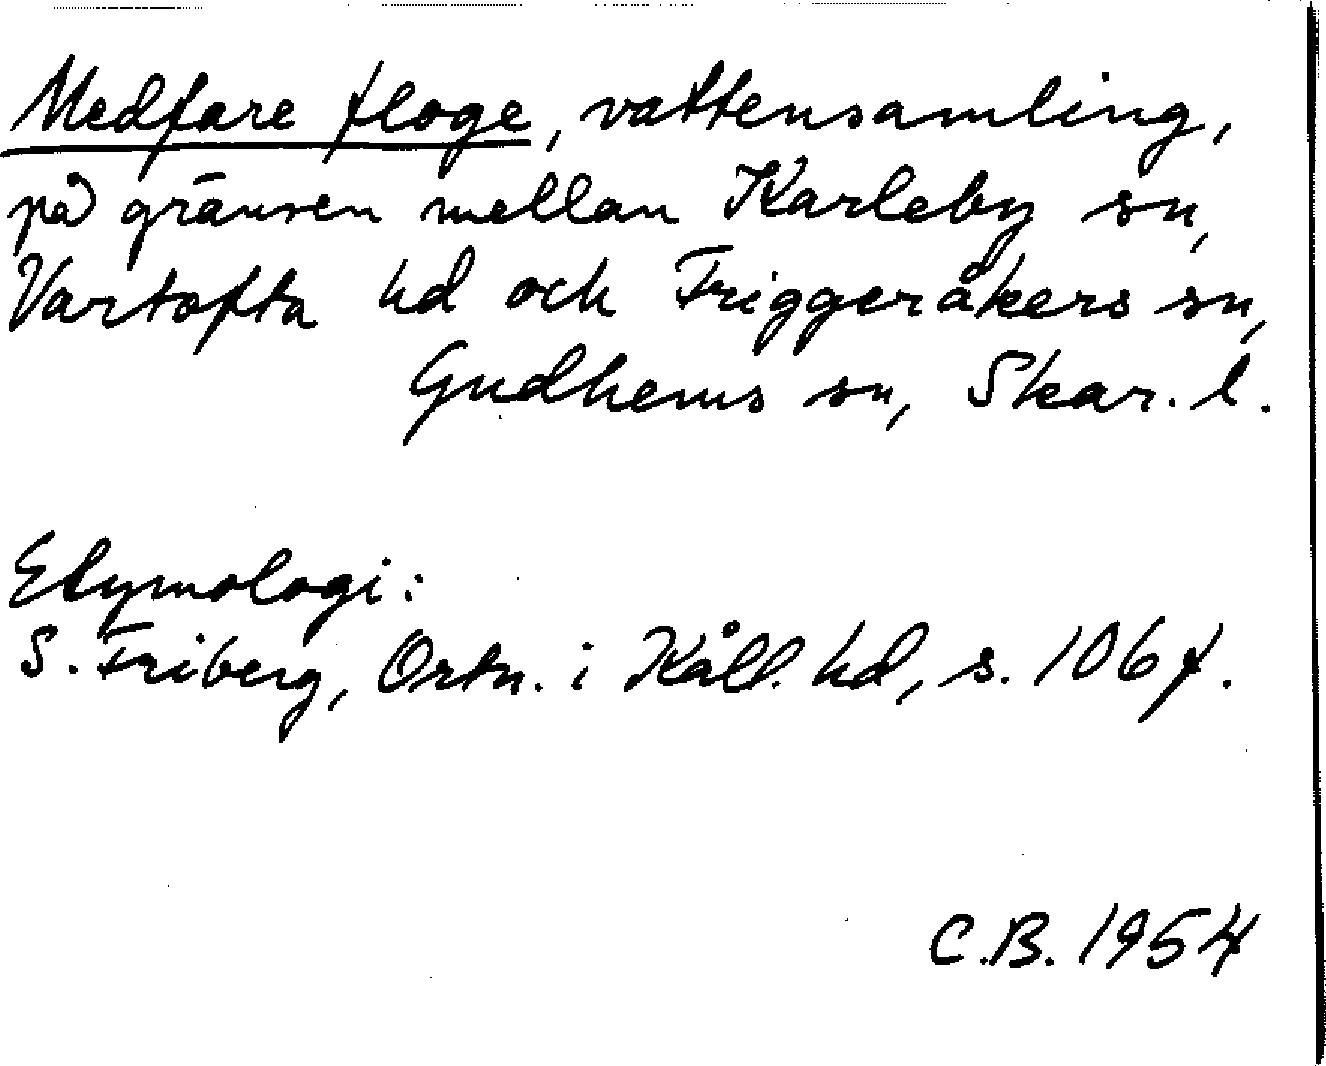 Medfare floge, vattensamling,
på gränsen mellan Karleby sn,
Vartofta hd och Friggeråkers sn,
Gudhems sn, Skar. l.
Etymologi:
S. Friberg, Ortn. i Kåll. hd, s. 106 f.
C.B. 1954